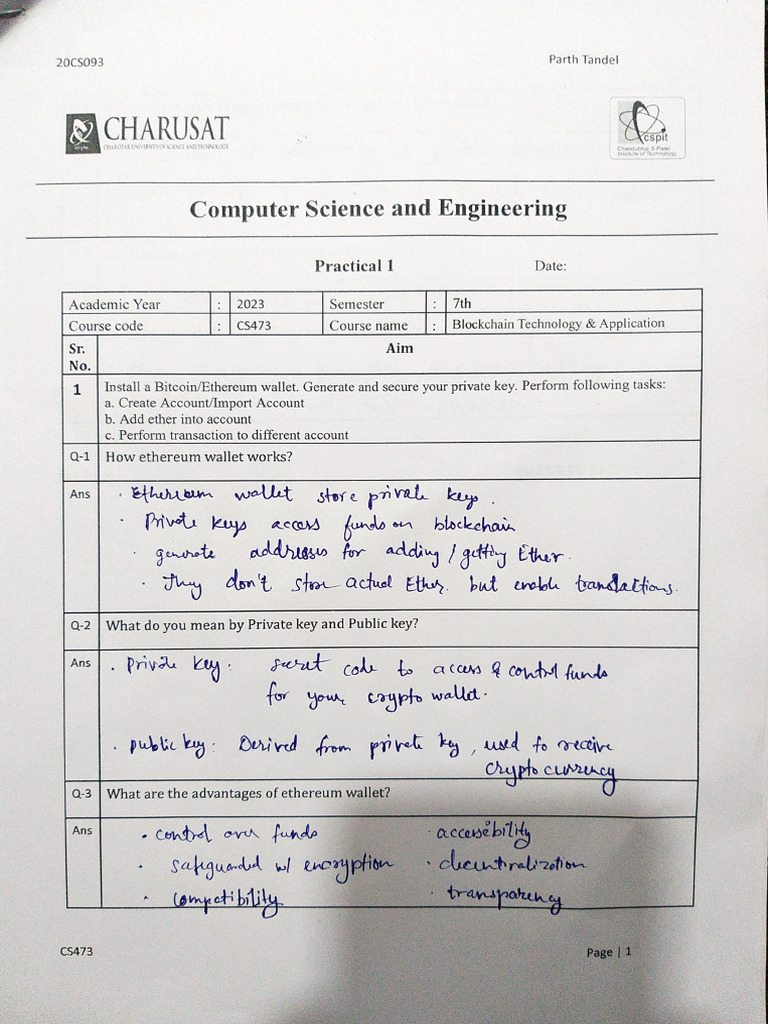 20CS093 Parth Tandel
CHARUSAT
CHAROTAR UNIVERSITY OF SCIENCE AND TECHNOLOGY
cspit
Chandubhai S Patel
Institute of Technology
Computer Science and Engineering
Practical 1 Date:
Academic Year : 2023 Semester : 7th
Course code : CS473 Course name : Blockchain Technology & Application
Sr. No. Aim
1 Install a Bitcoin/Ethereum wallet. Generate and secure your private key. Perform following tasks:
a. Create Account/Import Account
b. Add ether into account
c. Perform transaction to different account
Q-1 How ethereum wallet works?
Ans · Ethereum wallet store private keys.
· Private keys access funds on blockchain
· generate addresses for adding / getting Ether.
· They don't store actual Ether. but enable transactions.
Q-2 What do you mean by Private key and Public key?
Ans · Private key: secret code to access & control funds
for your crypto wallet.
· public key: Derived from private key, used to receive
crypto currency
Q-3 What are the advantages of ethereum wallet?
Ans · control over funds · accessibility
· safeguarded w/ encryption · decentralization
· compatibility · transparency
CS473 Page | 1